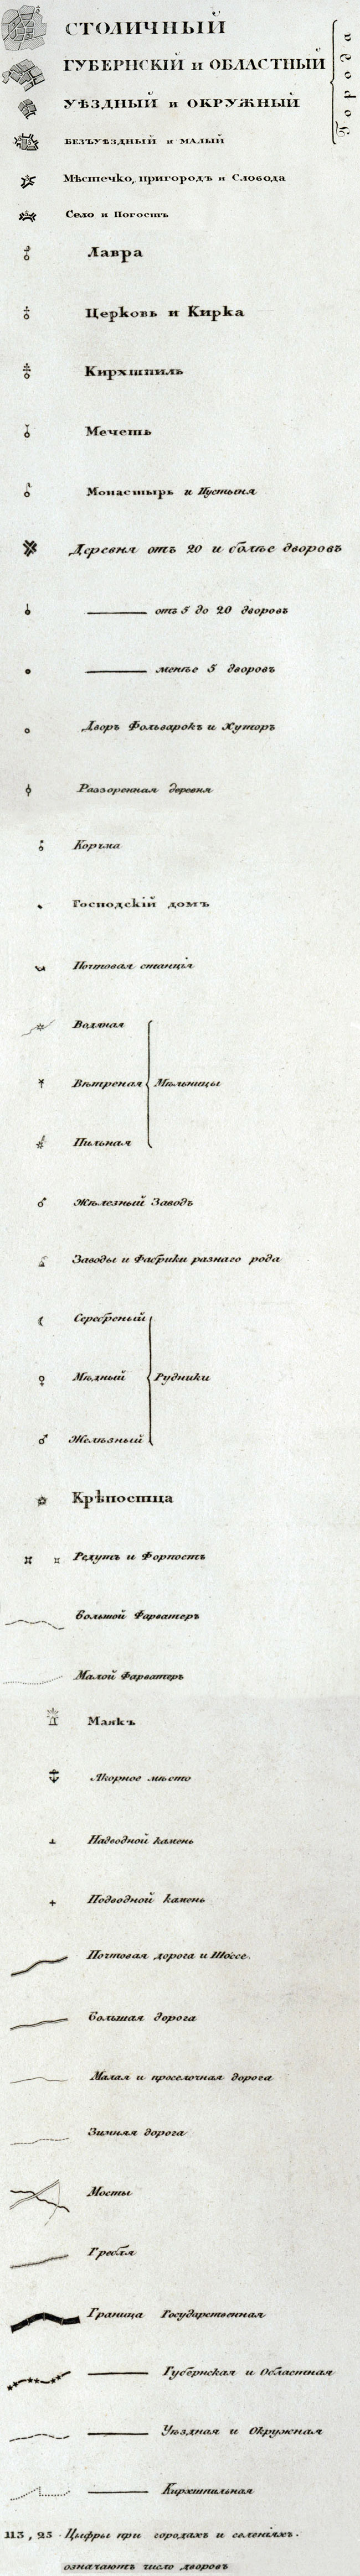 СТОЛИЧНЫЙ
ГУБЕРНСКІЙ и ОБЛАСТНЫЙ
УѢЗДНЫЙ и ОКРУЖНЫЙ
БЕЗЪУѢЗДНЫЙ и МАЛЫЙ
Города
Мѣстечко, пригородъ и Слобода
Село и Погостъ
Лавра
Церковь и Кирка
Кирхшпиль
Мечеть
Монастырь и Пустыня
Деревня отъ 20 и болѣе дворовъ
отъ 5 до 20 дворовъ
менѣе 5 дворовъ
Дворъ Фольварокъ и Хуторъ
Раззоренная деревня
Корчма
Господскій домъ
Почтовая станція
Водяная
Вѣтреная
Мѣльницы
Пильная
Жѣлезный Заводъ
Заводы и Фабрики разнаго рода
Серебреный
Мѣдный
Рудники
Желѣзный
Крѣпостца
Редутъ и Форпостъ
Большой Фарватеръ
Малой Фарватеръ
Маякъ
Якорное мѣсто
Надводной камень
Подводной камень
Почтовая дорога и Шоссе
Большая дорога
Малая и проселочная дорога
Зимняя дорога
Мосты
Гребля
Граница Государственная
Губернская и Областная
Уѣздная и Окружная
Кирхшпильная
113, 25 Цыфры при городахъ и селеніяхъ.
означаютъ число дворовъ